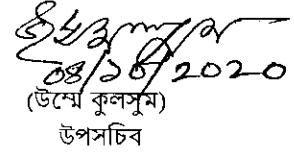 08/10/2020
(উম্মে কুলসুম)
উপসচিব